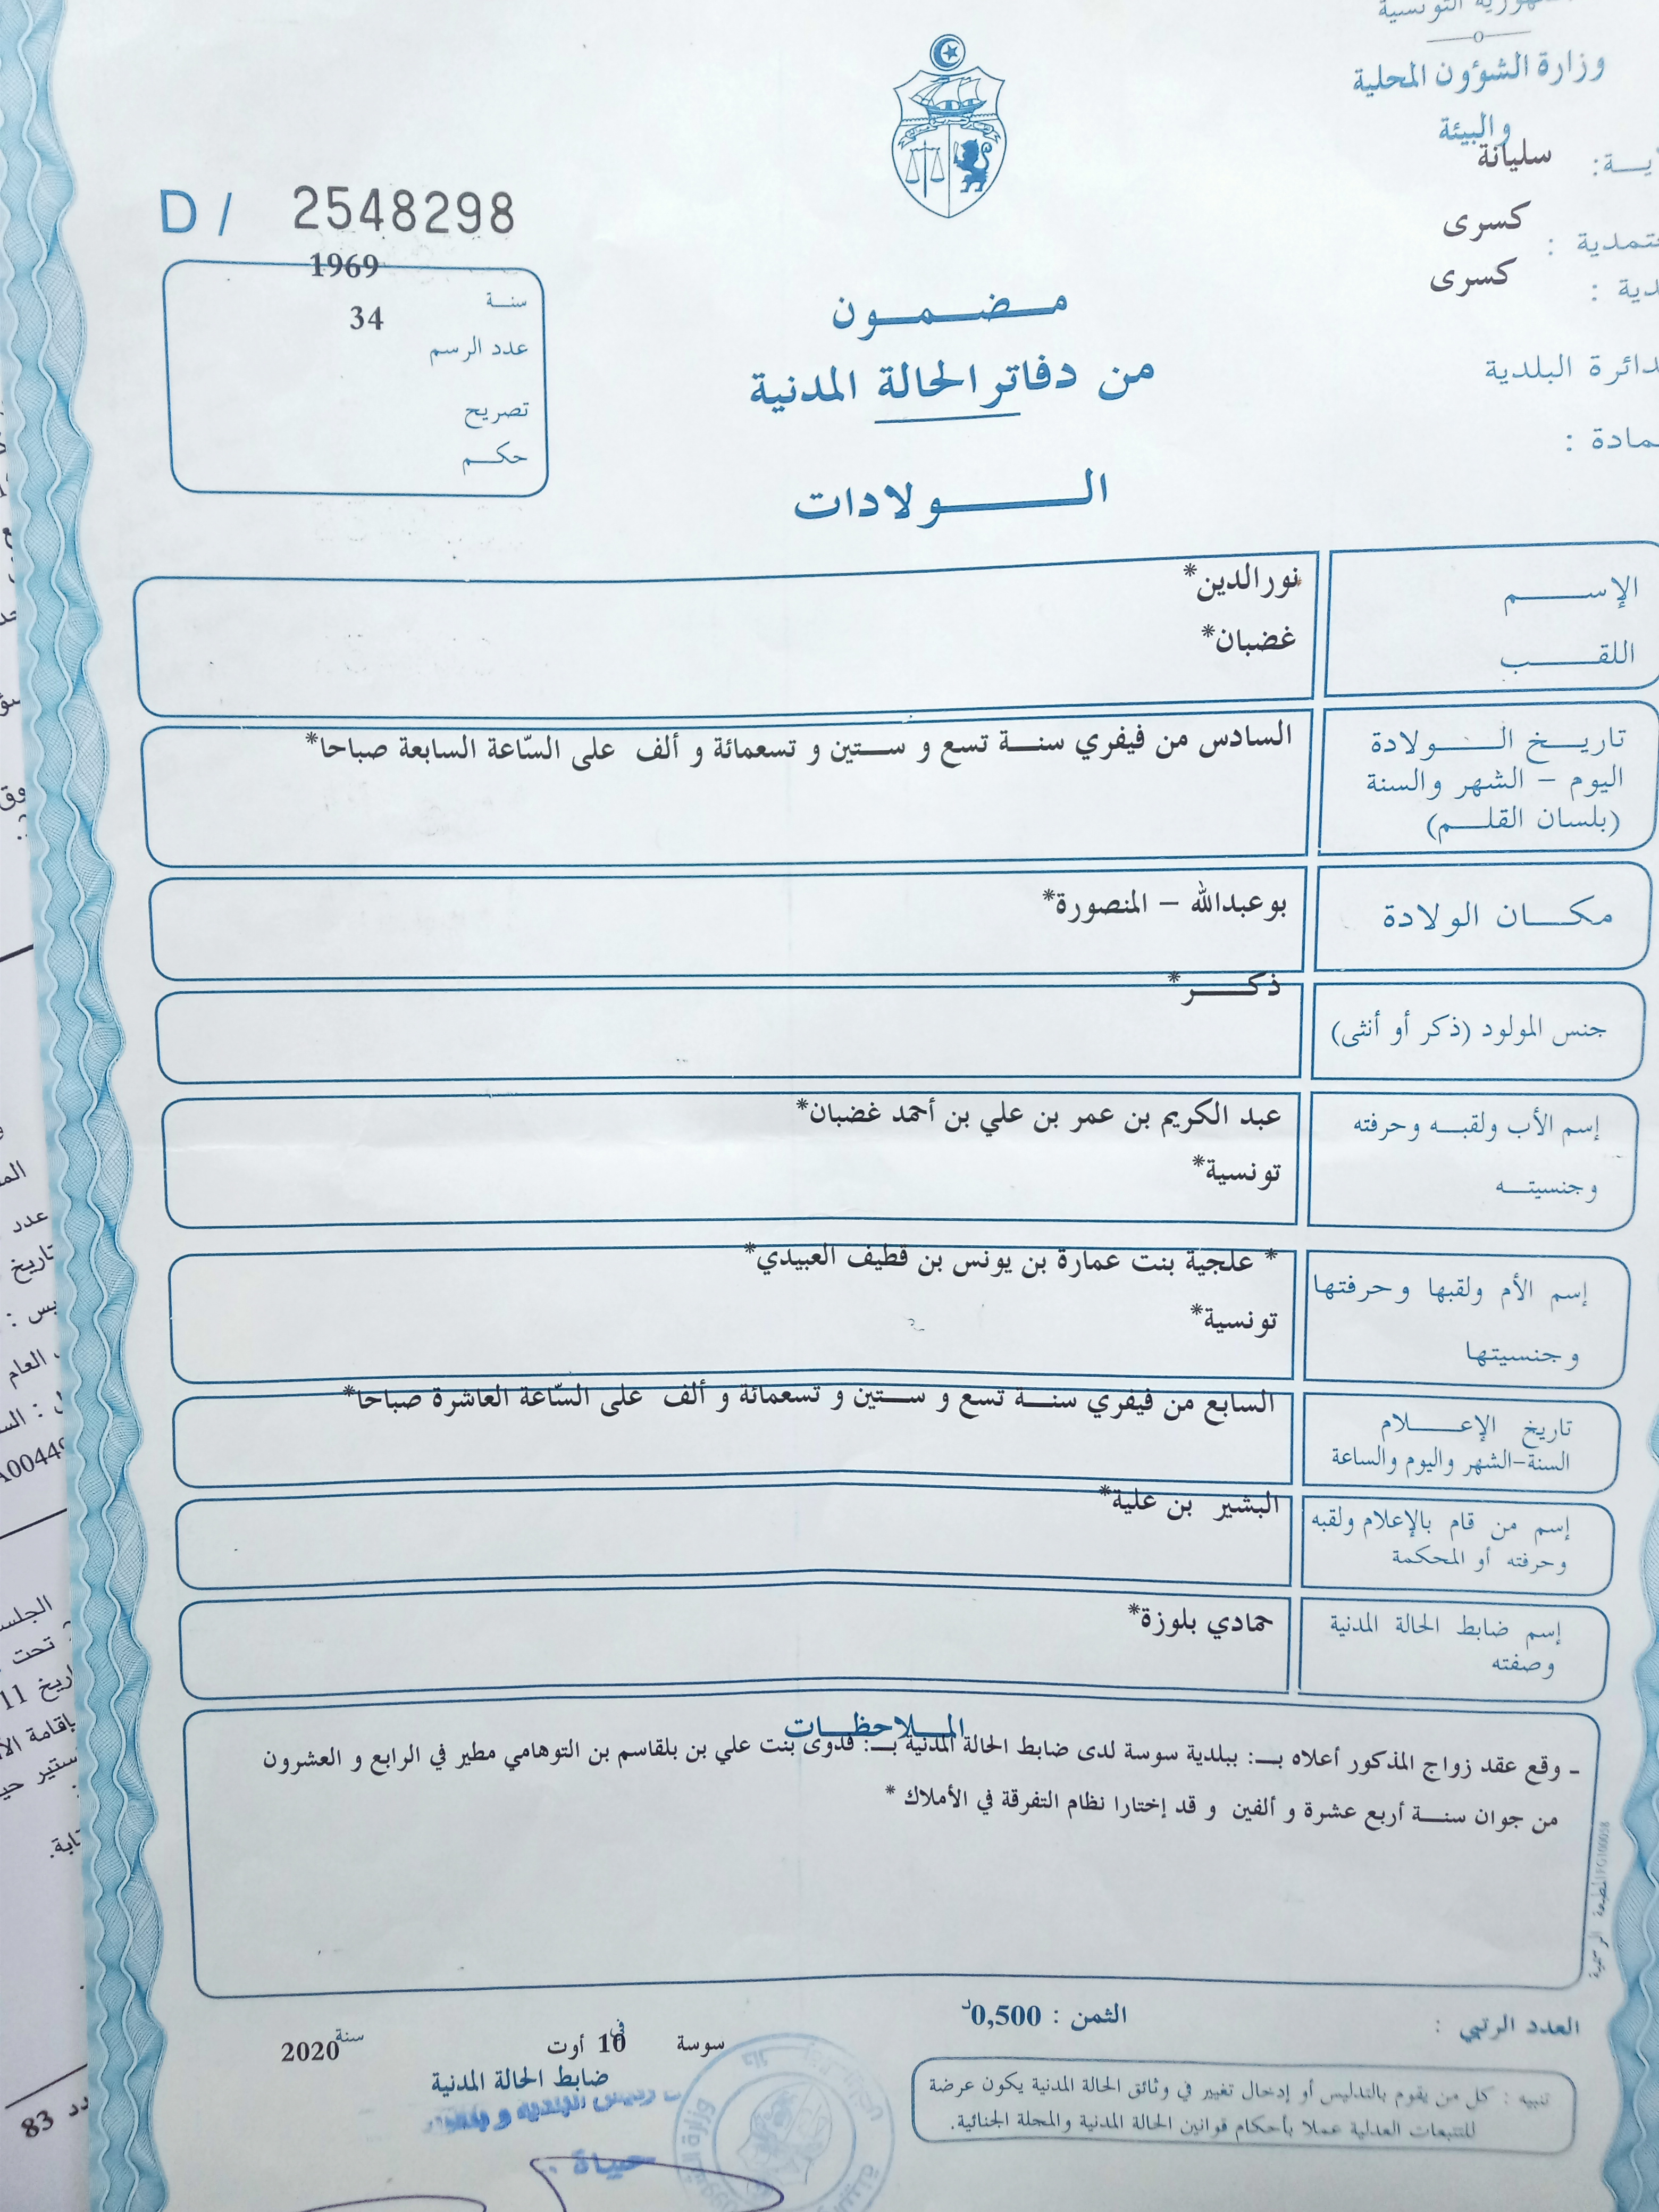 وزارة الشؤون المحلية
والبيئة
سليانة
كسرى
كسرى
الدائرة البلدية
D / 2548298
1969
سنة
34
عدد الرسم
تصريح
حكم
مضمون
من دفاتر الحالة المدنية
الولادات
الإسم
نورالدين*
اللقب
غضبان*
تاريخ الولادة
اليوم – الشهر والسنة
(بلسان القلم)
السادس من فيفري سنة تسع و ستين و تسعمائة و ألف على السّاعة السابعة صباحا*
مكان الولادة
بوعبدالله – المنصورة*
جنس المولود (ذكر أو أنثى)
ذكر*
إسم الأب ولقبه وحرفته
وجنسيته
عبد الكريم بن عمر بن علي بن أحمد غضبان*
تونسية*
إسم الأم ولقبها وحرفتها
وجنسيتها
* علجية بنت عمارة بن يونس بن قطيف العبيدي*
تونسية*
تاريخ الإعلام
السنة-الشهر واليوم والساعة
السابع من فيفري سنة تسع و ستين و تسعمائة و ألف على السّاعة العاشرة صباحا*
إسم من قام بالإعلام ولقبه
وحرفته أو المحكمة
البشير بن علية*
إسم ضابط الحالة المدنية
وصفته
حمادي بلوزة*
الملاحظات
- وقع عقد زواج المذكور أعلاه بـ: ببلدية سوسة لدى ضابط الحالة المدنية بـ: فدوى بنت علي بن بلقاسم بن التوهامي مطير في الرابع و العشرون
من جوان سنة أربع عشرة و ألفين و قد إختارا نظام التفرقة في الأملاك *
العدد الرتبي :
الثمن : 0,500د
سوسة في 10 أوت سنة 2020
ضابط الحالة المدنية
تنبيه : كل من يقوم بالتدليس أو إدخال تغيير في وثائق الحالة المدنية يكون عرضة
للتتبعات العدلية عملا بأحكام قوانين الحالة المدنية والمجلة الجنائية.
حياة